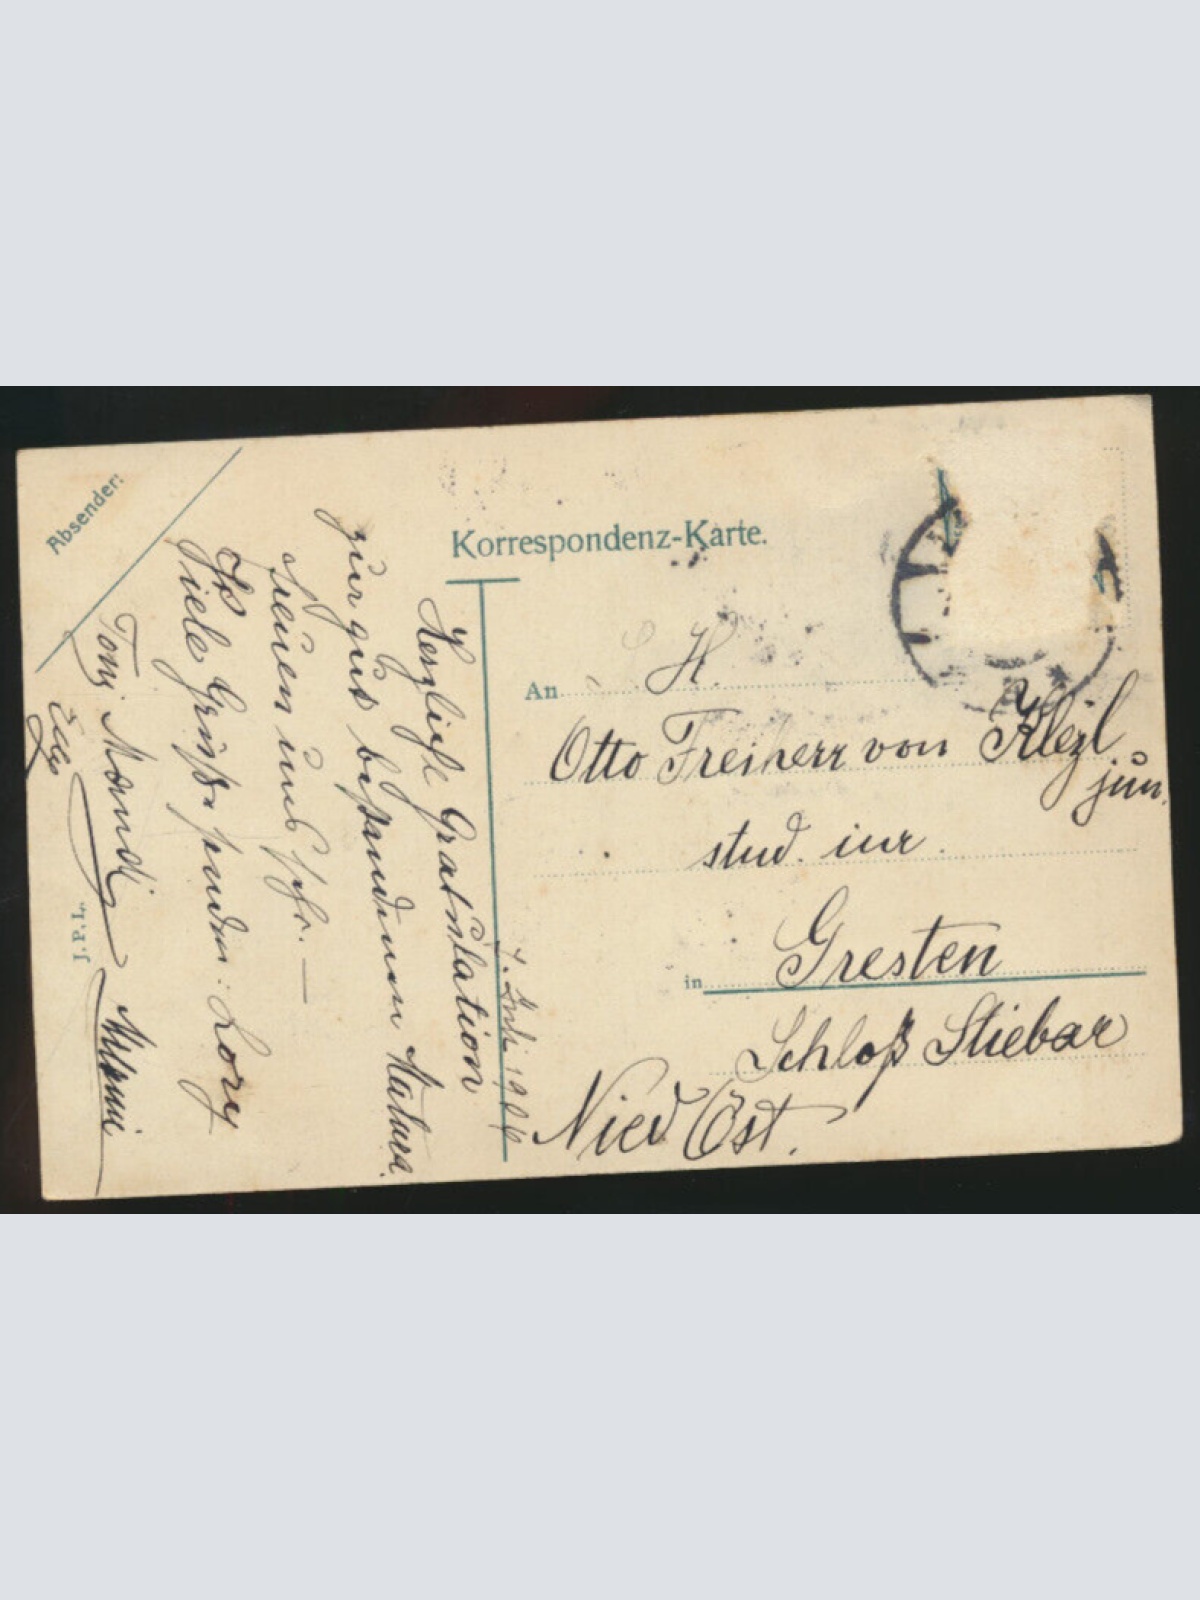 Absender:
Korrespondenz-Karte.
An H.
Otto Freiherr von Klezl
jun.
stud. iur.
in Gresten
Schloß Stiebar
Nied Öst.
Herzliche Gratulation
zur gut bestandenen Matura.
freuen uns sehr. —
Viele Grüße senden: Lory
Toni Mandi
J.P.L.